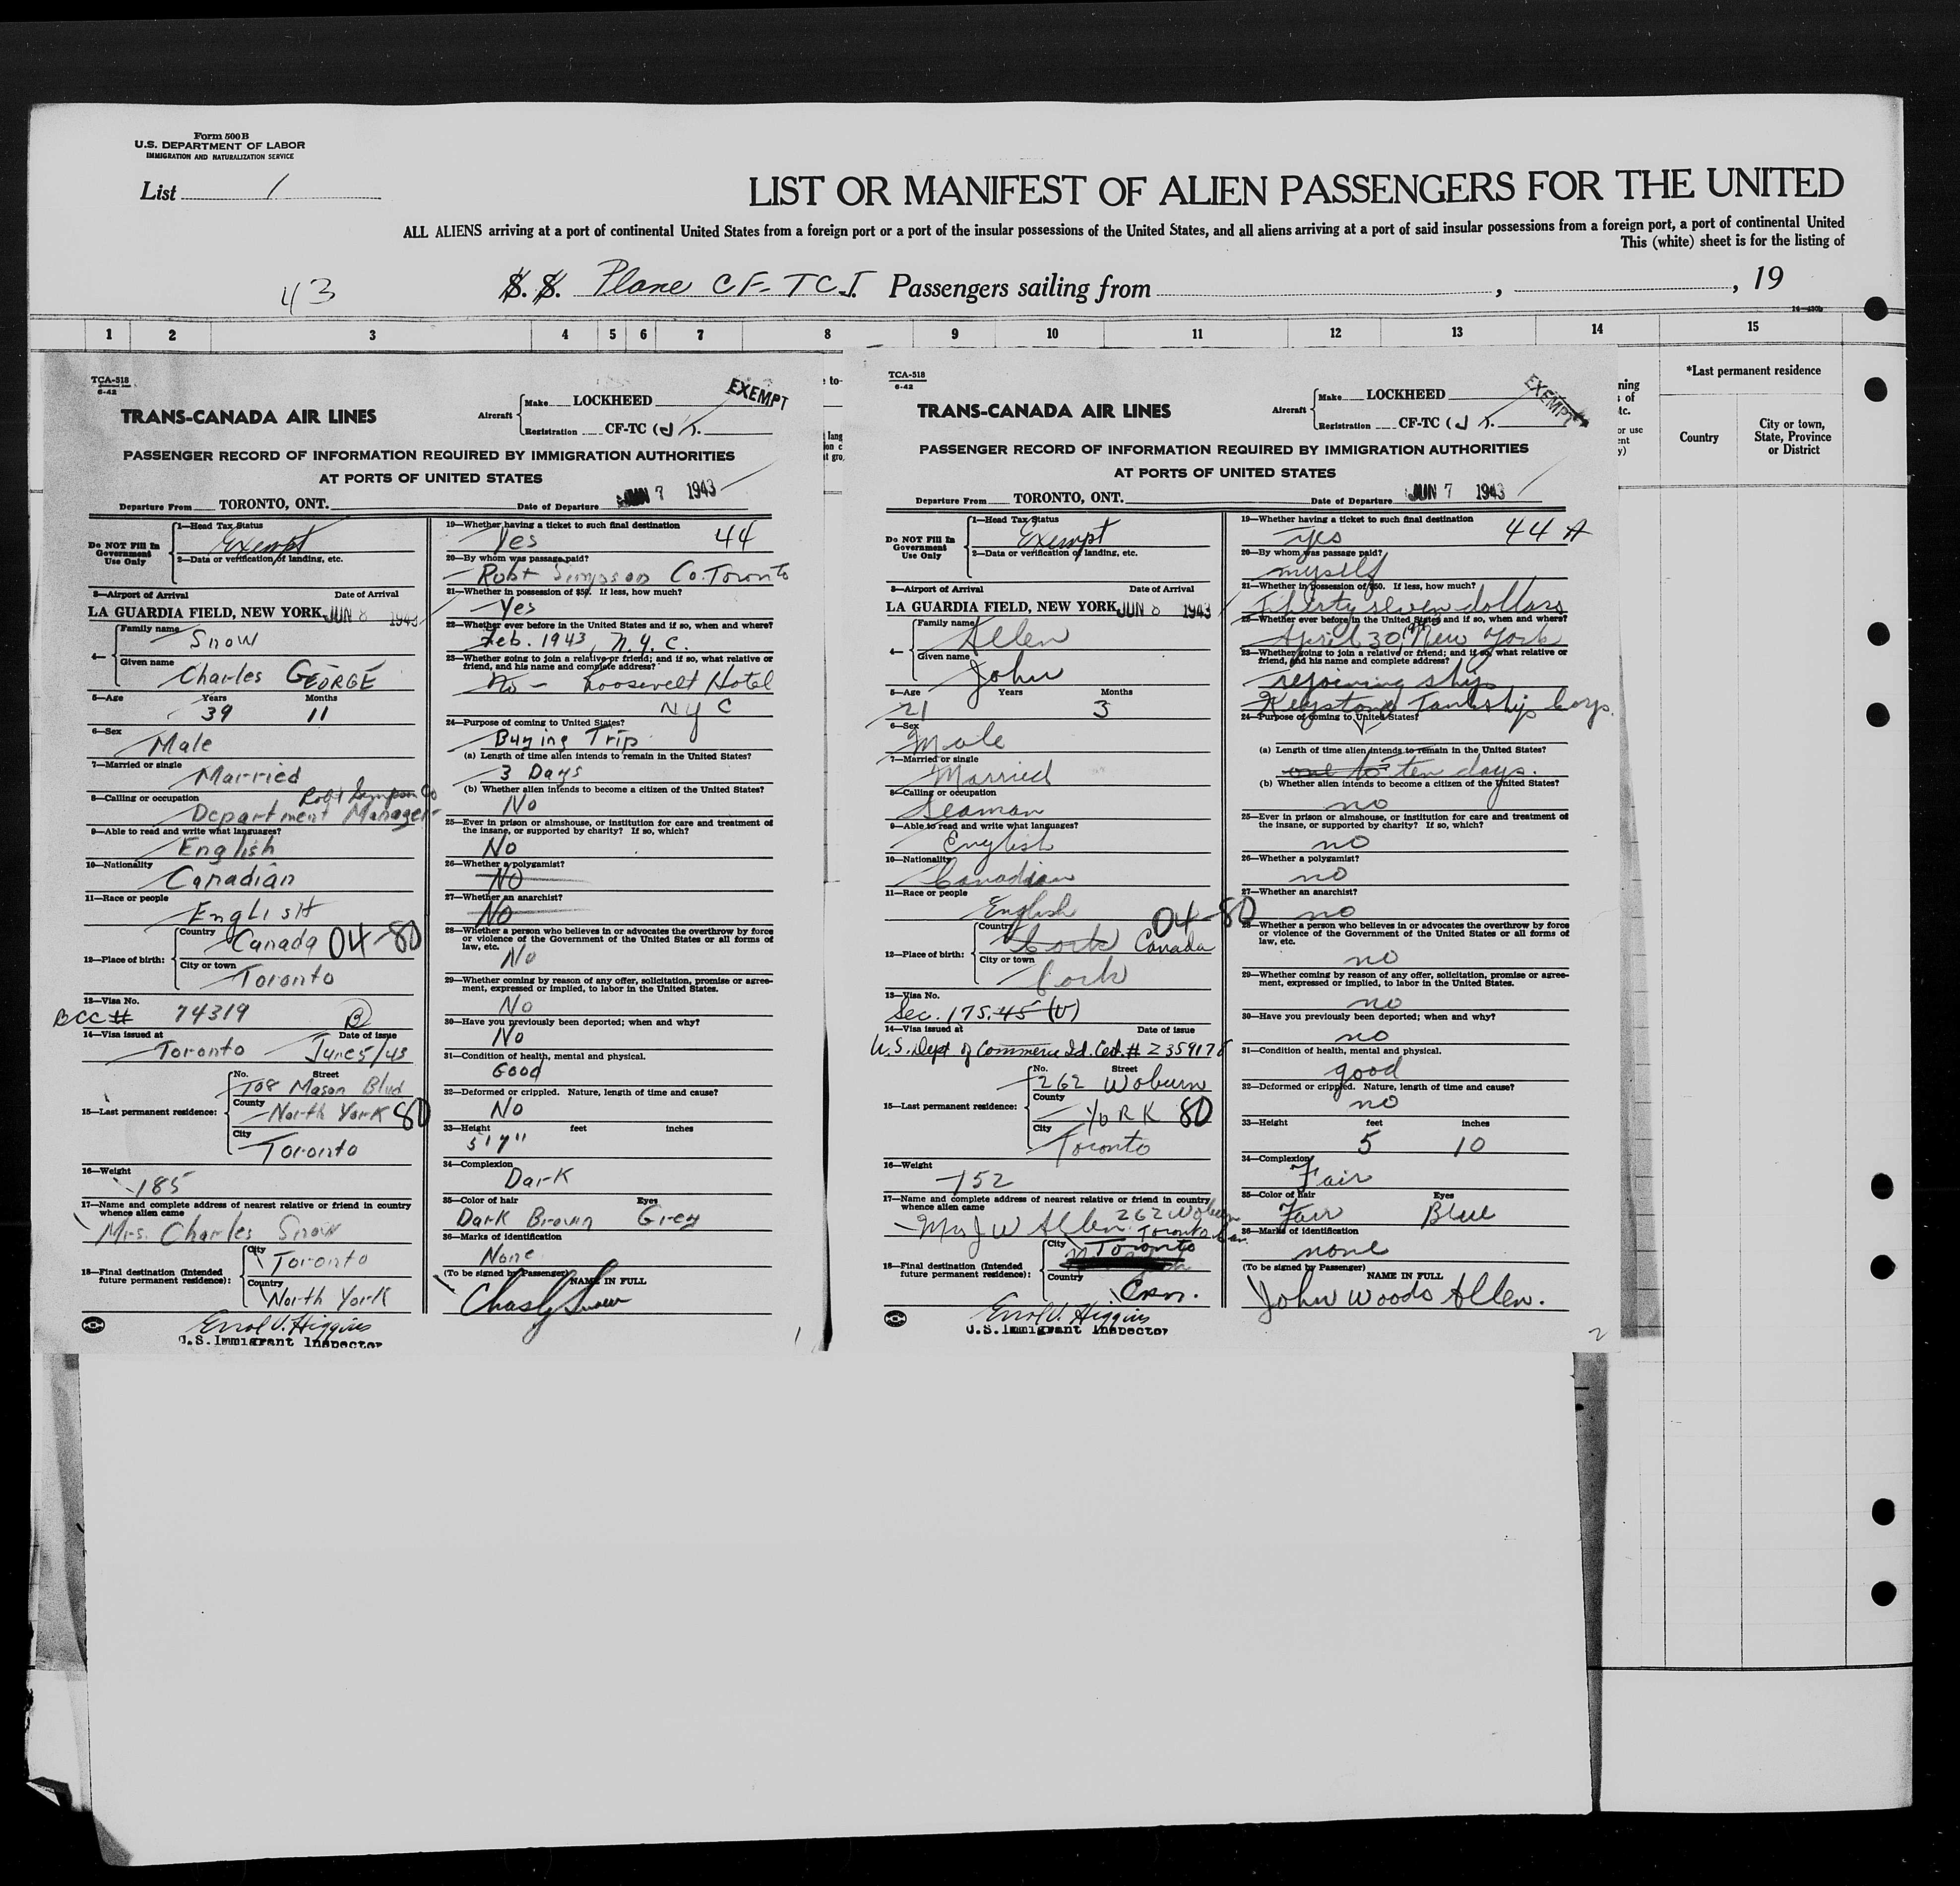 Form 500 B
U.S. DEPARTMENT OF LABOR
IMMIGRATION AND NATURALIZATION SERVICE
List 1
LIST OR MANIFEST OF ALIEN PASSENGERS FOR THE UNITED
ALL ALIENS arriving at a port of continental United States from a foreign port or a port of the insular possessions of the United States, and all aliens arriving at a port of said insular possessions from a foreign port, a port of continental United
This (white) sheet is for the listing of
43
S. S. Plane CF-TCJ. Passengers sailing from , , 19
1 2 3 4 5 6 7 8 9 10 11 12 13 14 15
*Last permanent residence
Country
City or town,
State, Province
or District
TCA-518
6-42
TRANS-CANADA AIR LINES
Aircraft
Make LOCKHEED
Registration CF-TC (J)
EXEMPT
PASSENGER RECORD OF INFORMATION REQUIRED BY IMMIGRATION AUTHORITIES
AT PORTS OF UNITED STATES
Departure From TORONTO, ONT. Date of Departure JUN 7 1943
Do NOT Fill In
Government
Use Only
1—Head Tax Status
Exempt
2—Data or verification of landing, etc.
3—Airport of Arrival Date of Arrival
LA GUARDIA FIELD, NEW YORK JUN 8 1943
4—
Family name
Snow
Given name
Charles GEORGE
5—Age Years Months
39 11
6—Sex
Male
7—Married or single
Married
8—Calling or occupation
Robt Simpson Co
Department Manager
9—Able to read and write what languages?
English
10—Nationality
Canadian
11—Race or people
English
12—Place of birth:
Country
Canada 04-80
City or town
Toronto
13—Visa No.
BCC # 74319 B
14—Visa issued at Date of issue
Toronto June 5/43
15—Last permanent residence:
No. Street
108 Mason Blvd
County
North York 80
City
Toronto
16—Weight
185
17—Name and complete address of nearest relative or friend in country
whence alien came
Mrs. Charles Snow
18—Final destination (Intended
future permanent residence):
City
Toronto
Country
North York
Errol V. Higgins
U.S. Immigrant Inspector
19—Whether having a ticket to such final destination
Yes 44
20—By whom was passage paid?
Robt Simpson Co. Toronto
21—Whether in possession of $50. If less, how much?
Yes
22—Whether ever before in the United States and if so, when and where?
Feb. 1943, N.Y.C.
23—Whether going to join a relative or friend; and if so, what relative or
friend, and his name and complete address?
No — Roosevelt Hotel
NYC
24—Purpose of coming to United States?
Buying Trip
(a) Length of time alien intends to remain in the United States?
3 Days
(b) Whether alien intends to become a citizen of the United States?
No
25—Ever in prison or almshouse, or institution for care and treatment of
the insane, or supported by charity? If so, which?
No
26—Whether a polygamist?
No
27—Whether an anarchist?
No
28—Whether a person who believes in or advocates the overthrow by force
or violence of the Government of the United States or all forms of
law, etc.
No
29—Whether coming by reason of any offer, solicitation, promise or agree-
ment, expressed or implied, to labor in the United States.
No
30—Have you previously been deported; when and why?
No
31—Condition of health, mental and physical.
Good
32—Deformed or crippled. Nature, length of time and cause?
No
33—Height feet inches
5'7"
34—Complexion
Dark
35—Color of hair Eyes
Dark Brown Grey
36—Marks of identification
None
(To be signed by Passenger) NAME IN FULL
Chas G Snow
1
TCA-518
6-42
TRANS-CANADA AIR LINES
Aircraft
Make LOCKHEED
Registration CF-TC (J)
EXEMPT
PASSENGER RECORD OF INFORMATION REQUIRED BY IMMIGRATION AUTHORITIES
AT PORTS OF UNITED STATES
Departure From TORONTO, ONT. Date of Departure JUN 7 1943
Do NOT Fill In
Government
Use Only
1—Head Tax Status
Exempt
2—Data or verification of landing, etc.
3—Airport of Arrival Date of Arrival
LA GUARDIA FIELD, NEW YORK JUN 8 1943
4—
Family name
Allen
Given name
John
5—Age Years Months
21 3
6—Sex
Male
7—Married or single
Married
8—Calling or occupation
Seaman
9—Able to read and write what languages?
English
10—Nationality
Canadian
11—Race or people
English
12—Place of birth:
Country 04-80
York Canada
City or town
York
13—Visa No.
Sec. 175.45 (b)
14—Visa issued at Date of issue
U.S. Dept of Commerce Id. Cert. # Z359178
15—Last permanent residence:
No. Street
262 Woburn
County
YORK 80
City
Toronto
16—Weight
152
17—Name and complete address of nearest relative or friend in country
whence alien came
262 Woburn
Mrs J W Allen Toronto Can.
18—Final destination (Intended
future permanent residence):
City
Toronto
Country
Can.
Errol V. Higgins
U.S. Immigrant Inspector
19—Whether having a ticket to such final destination
yes 44 A
20—By whom was passage paid?
myself
21—Whether in possession of $50. If less, how much?
seven dollars
22—Whether ever before in the United States and if so, when and where?
April 30, 1943 New York
23—Whether going to join a relative or friend; and if so, what relative or
friend, and his name and complete address?
rejoining ship
Keystone Tankship Corp.
24—Purpose of coming to United States?
(a) Length of time alien intends to remain in the United States?
one to ten days.
(b) Whether alien intends to become a citizen of the United States?
no
25—Ever in prison or almshouse, or institution for care and treatment of
the insane, or supported by charity? If so, which?
no
26—Whether a polygamist?
no
27—Whether an anarchist?
no
28—Whether a person who believes in or advocates the overthrow by force
or violence of the Government of the United States or all forms of
law, etc.
no
29—Whether coming by reason of any offer, solicitation, promise or agree-
ment, expressed or implied, to labor in the United States.
no
30—Have you previously been deported; when and why?
no
31—Condition of health, mental and physical.
good
32—Deformed or crippled. Nature, length of time and cause?
no
33—Height feet inches
5 10
34—Complexion
Fair
35—Color of hair Eyes
Fair Blue
36—Marks of identification
none
(To be signed by Passenger)
NAME IN FULL
John Woods Allen.
2